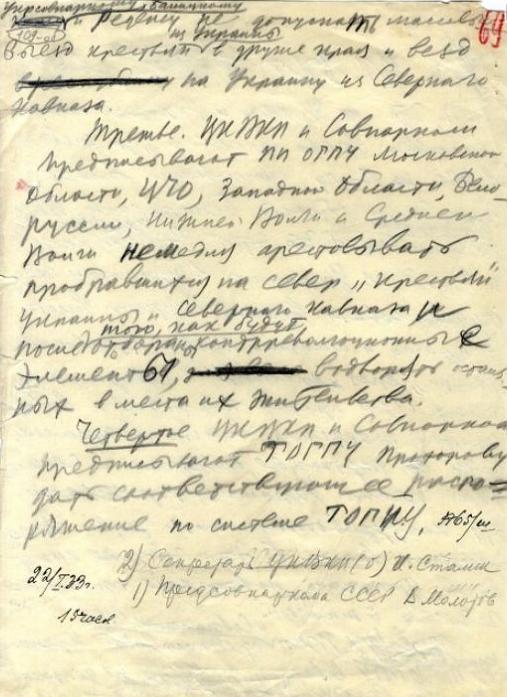 Укрсовнаркому, Балицкому
и Реденсу не допускать массовый
из Украины
выезд крестьян в другие края и везд
на Украину из Северного
Кавказа.
Третье. ЦК ВКП и Совнарком
предписывают ПП ОГПУ Московской
области, ЦЧО, Западной области, Бело-
руссии, Нижней Волги и Средней
Волги немедля арестовывать
пробравшихся на север „крестьян"
Украины и Северного Кавказа и
того, как будут
после отобраны контрреволюционные
элементы, водворять осталь-
ных в места их жительства.
Четвертое ЦК ВКП и Совнарком
предписывают ТОГПУ Прохорову
дать соответствующее распо-
ряжение по системе ТОГПУ.
№ 65/ш
2) Секретарь ЦК ВКП(б) И. Сталин
22/I.33г.
1) Предсовнаркома СССР В. Молотов
15 часов